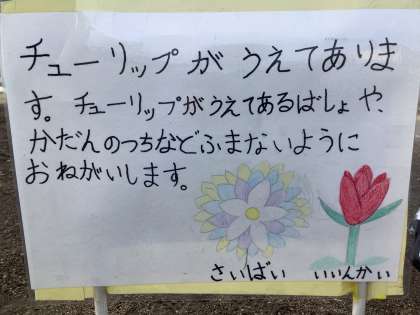 チューリップが うえてありま
す。チューリップがうえてあるばしょや、
かだんのつちなどふまないように
おねがいします。
さいばい いいんかい